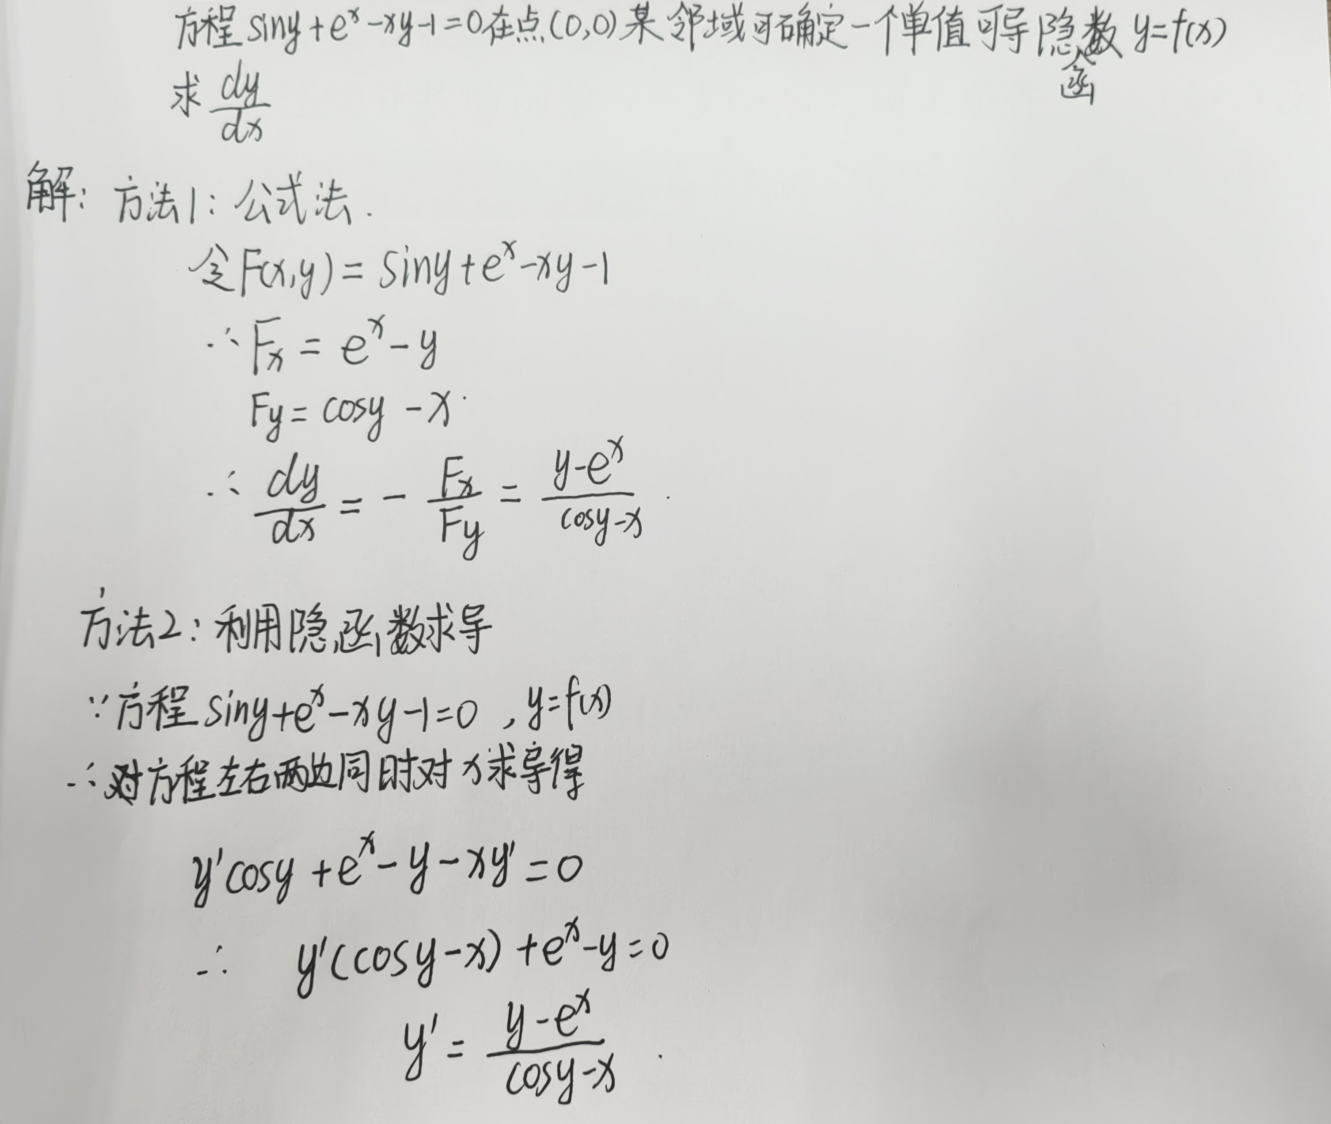 方程 siny+eˣ-xy-1=0在点(0,0)某邻域可确定一个单值可导隐函数 y=f(x)
求 dy/dx
解: 方法1: 公式法.
令F(x,y)= siny+eˣ-xy-1
∴ Fx = eˣ-y
Fy= cosy -x
∴ dy/dx = - Fx/Fy = (y-eˣ)/(cosy-x)
方法2: 利用隐函数求导
∵方程 siny+eˣ-xy-1=0 , y=f(x)
∴对方程左右两边同时对x求导得
y'cosy +eˣ- y - xy' =0
∴ y'(cosy-x) +eˣ-y=0
y' = (y-eˣ)/(cosy-x) .